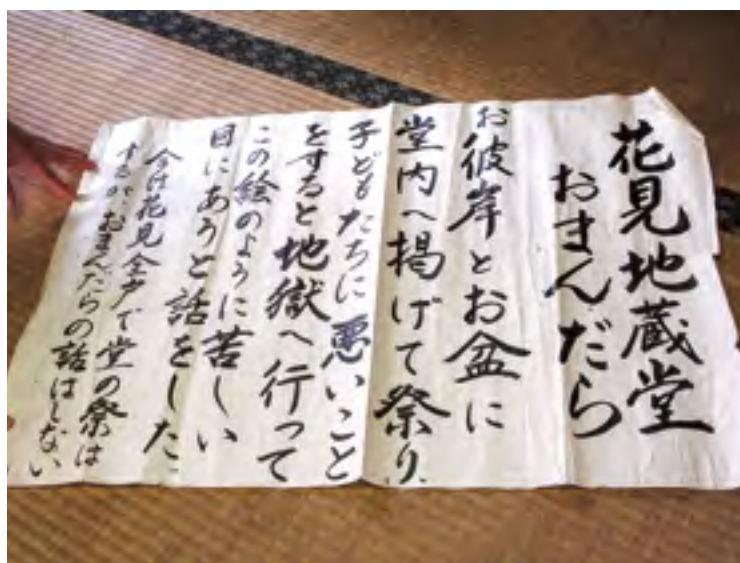 花見地蔵堂
おまんだら
お彼岸とお盆に
堂内へ掲げて祭り、
子どもたちに悪いこと
をすると地獄へ行って
この絵のように苦しい
目にあうと話をした。
今は花見全戸で堂の祭は
するが、おまんだらの話はしない